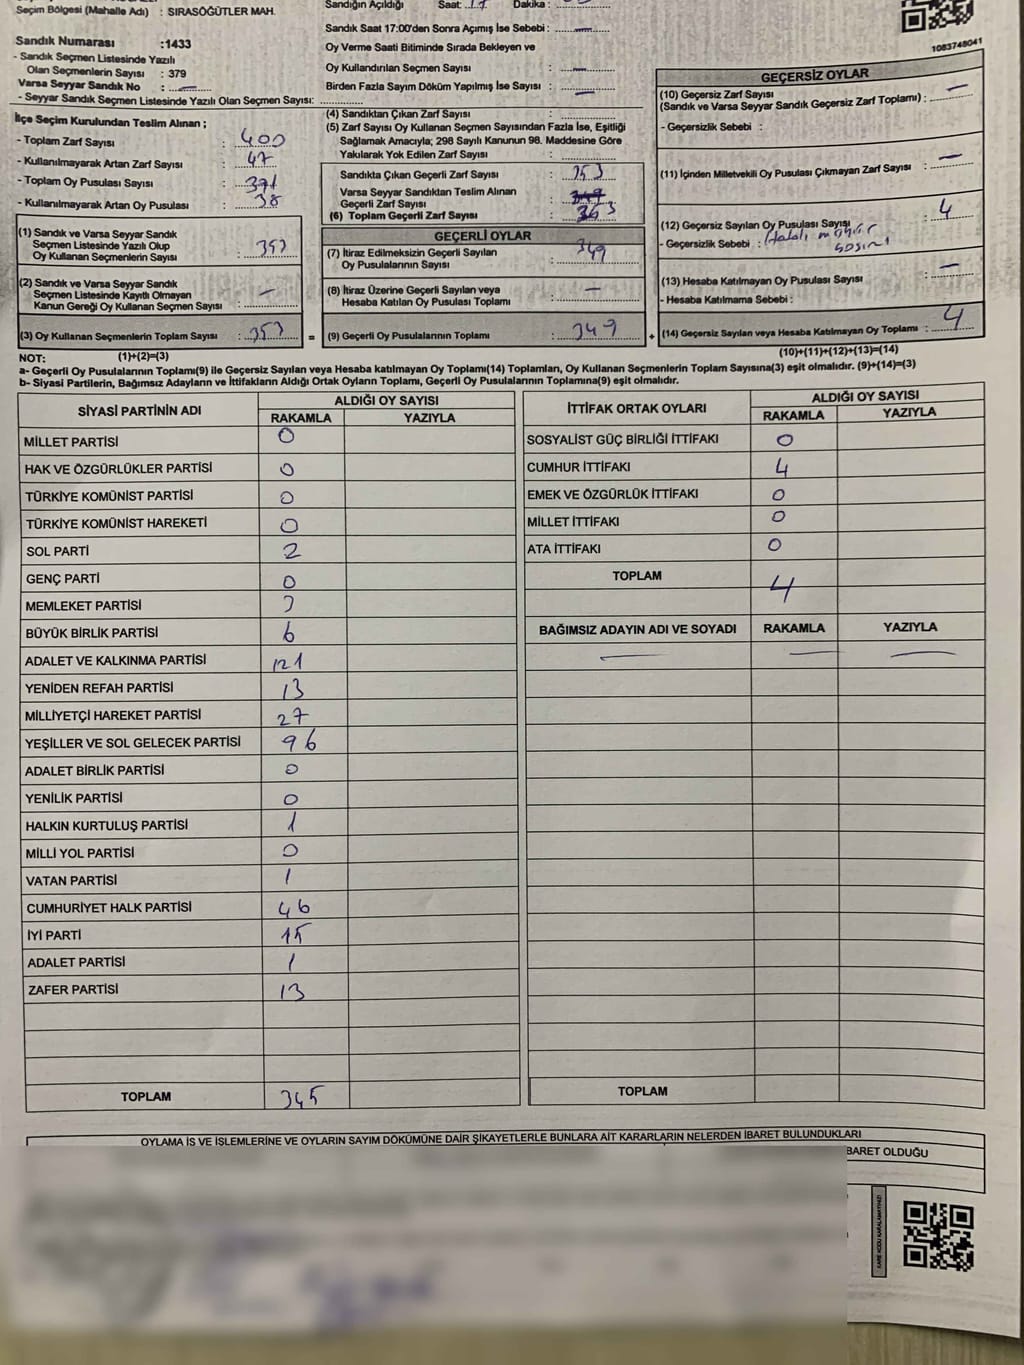 Seçim Bölgesi (Mahalle Adı) : SIRASÖĞÜTLER MAH.
Sandık Numarası :1433
- Sandık Seçmen Listesinde Yazılı
Olan Seçmenlerin Sayısı : 379
Varsa Seyyar Sandık No : —
- Seyyar Sandık Seçmen Listesinde Yazılı Olan Seçmen Sayısı:
İlçe Seçim Kurulundan Teslim Alınan ;
- Toplam Zarf Sayısı : 400
- Kullanılmayarak Artan Zarf Sayısı : 47
- Toplam Oy Pusulası Sayısı :
- Kullanılmayarak Artan Oy Pusulası : 38
(1) Sandık ve Varsa Seyyar Sandık
Seçmen Listesinde Yazılı Olup
Oy Kullanan Seçmenlerin Sayısı : 353
(2) Sandık ve Varsa Seyyar Sandık
Seçmen Listesinde Kayıtlı Olmayan
Kanun Gereği Oy Kullanan Seçmen Sayısı : —
(3) Oy Kullanan Seçmenlerin Toplam Sayısı : 353 =
Sandığın Açıldığı Saat: 17 Dakika :
Sandık Saat 17:00'den Sonra Açımış İse Sebebi : —
Oy Verme Saati Bitiminde Sırada Bekleyen ve
Oy Kullandırılan Seçmen Sayısı : —
Birden Fazla Sayım Döküm Yapılmış İse Sayısı : —
(4) Sandıktan Çıkan Zarf Sayısı :
(5) Zarf Sayısı Oy Kullanan Seçmen Sayısından Fazla İse, Eşitliği
Sağlamak Amacıyla; 298 Sayılı Kanunun 98. Maddesine Göre
Yakılarak Yok Edilen Zarf Sayısı :
Sandıkta Çıkan Geçerli Zarf Sayısı : 353
Varsa Seyyar Sandıktan Teslim Alınan
Geçerli Zarf Sayısı : 349
(6) Toplam Geçerli Zarf Sayısı :
GEÇERLİ OYLAR
(7) İtiraz Edilmeksizin Geçerli Sayılan
Oy Pusulalarının Sayısı : 349
(8) İtiraz Üzerine Geçerli Sayılan veya
Hesaba Katılan Oy Pusulası Toplamı : —
(9) Geçerli Oy Pusulalarının Toplamı : 349 +
1083748041
GEÇERSİZ OYLAR
(10) Geçersiz Zarf Sayısı
(Sandık ve Varsa Seyyar Sandık Geçersiz Zarf Toplamı) : —
- Geçersizlik Sebebi :
(11) İçinden Milletvekili Oy Pusulası Çıkmayan Zarf Sayısı : —
(12) Geçersiz Sayılan Oy Pusulası Sayısı : 4
- Geçersizlik Sebebi : Hatalı mühür
(13) Hesaba Katılmayan Oy Pusulası Sayısı : —
- Hesaba Katılmama Sebebi :
(14) Geçersiz Sayılan veya Hesaba Katılmayan Oy Toplamı : 4
NOT: (1)+(2)=(3)
(10)+(11)+(12)+(13)=(14)
a- Geçerli Oy Pusulalarının Toplamı(9) ile Geçersiz Sayılan veya Hesaba katılmayan Oy Toplamı(14) Toplamları, Oy Kullanan Seçmenlerin Toplam Sayısına(3) eşit olmalıdır. (9)+(14)=(3)
b- Siyasi Partilerin, Bağımsız Adayların ve İttifakların Aldığı Ortak Oyların Toplamı, Geçerli Oy Pusulalarının Toplamına(9) eşit olmalıdır.
SİYASİ PARTİNİN ADI ALDIĞI OY SAYISI
RAKAMLA YAZIYLA
MİLLET PARTİSİ 0
HAK VE ÖZGÜRLÜKLER PARTİSİ 0
TÜRKİYE KOMÜNİST PARTİSİ 0
TÜRKİYE KOMÜNİST HAREKETİ 0
SOL PARTİ 2
GENÇ PARTİ 0
MEMLEKET PARTİSİ
BÜYÜK BİRLİK PARTİSİ 6
ADALET VE KALKINMA PARTİSİ 121
YENİDEN REFAH PARTİSİ 13
MİLLİYETÇİ HAREKET PARTİSİ 27
YEŞİLLER VE SOL GELECEK PARTİSİ 96
ADALET BİRLİK PARTİSİ 0
YENİLİK PARTİSİ 0
HALKIN KURTULUŞ PARTİSİ 1
MİLLİ YOL PARTİSİ 0
VATAN PARTİSİ 1
CUMHURİYET HALK PARTİSİ 46
İYİ PARTİ 15
ADALET PARTİSİ 1
ZAFER PARTİSİ 13
TOPLAM 345
İTTİFAK ORTAK OYLARI ALDIĞI OY SAYISI
RAKAMLA YAZIYLA
SOSYALİST GÜÇ BİRLİĞİ İTTİFAKI 0
CUMHUR İTTİFAKI 4
EMEK VE ÖZGÜRLÜK İTTİFAKI 0
MİLLET İTTİFAKI 0
ATA İTTİFAKI 0
TOPLAM 4
BAĞIMSIZ ADAYIN ADI VE SOYADI RAKAMLA YAZIYLA
— — —
TOPLAM
OYLAMA İŞ VE İŞLEMLERİNE VE OYLARIN SAYIM DÖKÜMÜNE DAİR ŞİKAYETLERLE BUNLARA AİT KARARLARIN NELERDEN İBARET BULUNDUKLARI
BARET OLDUĞU
KARE KODU KARALAMAYINIZ!